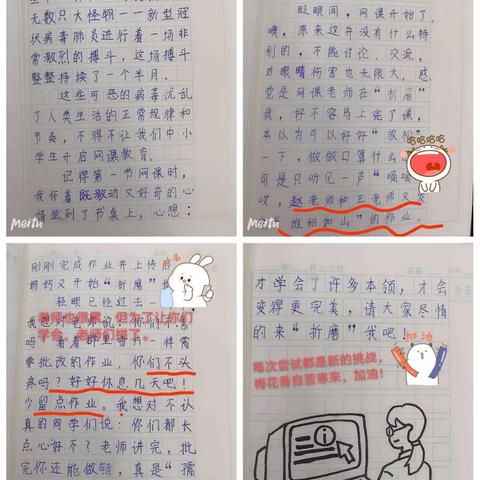 无数只大怪物——新型冠
状病毒肺炎进行着一场非
常激烈的搏斗，这场搏斗
整整持续了一个半月。
这些可恶的病毒沈乱
了人类生活的正常规律和
节奏，不得不让我们中小
学生开启网课教育。
记得第一节网课时，
我怀着既激动又好奇的心
情坐到了书桌上，心想：
Meitu
眨眼间，网课开始了，
噢，原来这并没有什么特
别的，不能讨论、交流，
对眼睛伤害也无限大，感
觉是网课老师在“折磨”
我，好不容易上完了课，
本以为可以好好“放松”
一下，做做口算什么
可是只听见一声“嘀嘀
哎，赵老师和王老师又发
堆积如山”的作业。
哈哈哈哈
Meitu
刚刚完成作业并上传后
妈妈又开始“折磨”我
轻眼已经过去一
我想对老师说：你们不
吗？看着那些山一样需
要批改的作业，你们不头
疼吗？好好休息几天吧！
少留点作业。我想对不认
真的同学们说：你们都长
点心好不？老师讲完，批
完你还能做错，真是“孺
老师也很累，但为了让你们
学会，老师们拼了。
才学会了许多本领，才会
变得更完美，请大家尽情
的来“折磨”我吧！
加油
每次尝试都是新的挑战，
梅花香自苦寒来，加油！